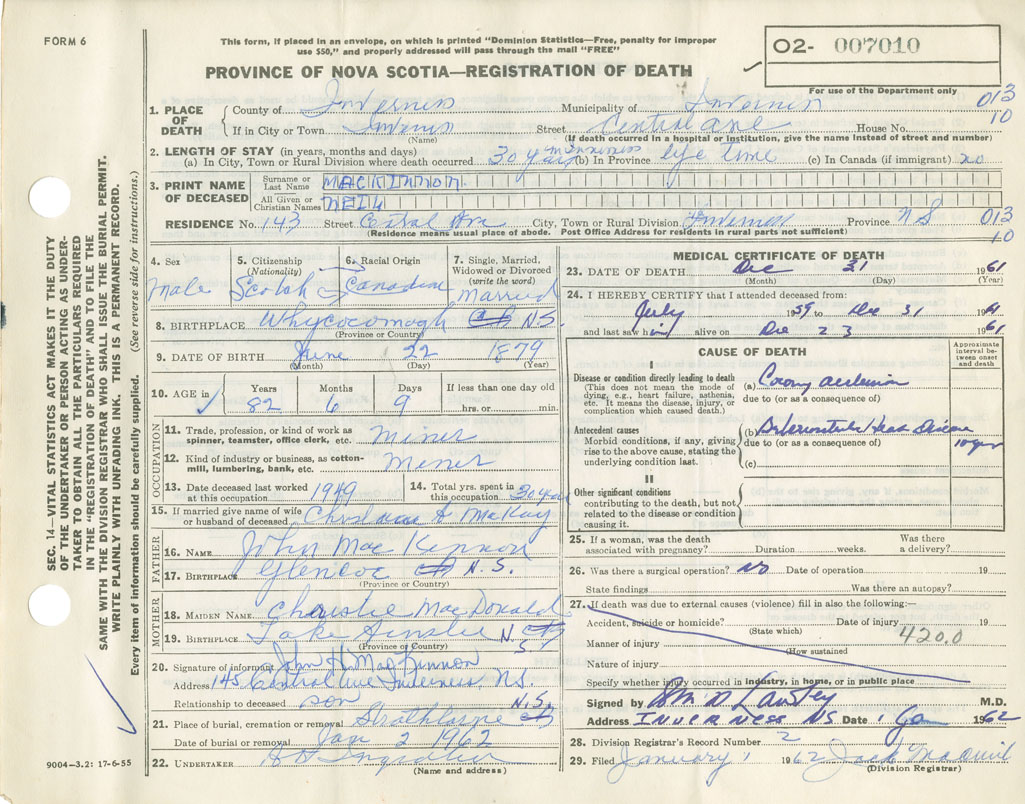 FORM 6
This form, if placed in an envelope, on which is printed "Dominion Statistics—Free, penalty for improper
use $50," and properly addressed will pass through the mail "FREE"
PROVINCE OF NOVA SCOTIA—REGISTRATION OF DEATH
02- 007010
For use of the Department only
013
10
1. PLACE OF DEATH
County of Inverness Municipality of Inverness
If in City or Town Inverness Street Central Ave House No.
(Name) (If death occurred in a hospital or institution, give the name instead of street and number)
2. LENGTH OF STAY (in years, months and days)
(a) In City, Town or Rural Division where death occurred 30 years in Inverness (b) In Province life time (c) In Canada (if immigrant) no
3. PRINT NAME OF DECEASED
Surname or Last Name MACKINNON
All Given or Christian Names NEIL
RESIDENCE No. 143 Street Central Ave City, Town or Rural Division Inverness Province N S
(Residence means usual place of abode. Post Office Address for residents in rural parts not sufficient)
013
10
4. Sex
Male
5. Citizenship
(Nationality)
Scotch
6. Racial Origin
Canadian
7. Single, Married, Widowed or Divorced
(write the word)
Married
8. BIRTHPLACE Whycocomagh C B N.S.
(Province or Country)
9. DATE OF BIRTH June 22 1879
(Month) (Day) (Year)
10. AGE in
Years Months Days If less than one day old
82 6 9 hrs. or min.
OCCUPATION
11. Trade, profession, or kind of work as
spinner, teamster, office clerk, etc. Miner
12. Kind of industry or business, as cotton-
mill, lumbering, bank, etc. Miner
13. Date deceased last worked
at this occupation 1949
14. Total yrs. spent in
this occupation 30 years
15. If married give name of wife
or husband of deceased McKay
FATHER
16. NAME John Mac Kennon
17. BIRTHPLACE Glencoe C B N.S.
(Province or Country)
MOTHER
18. MAIDEN NAME Christie MacDonald
19. BIRTHPLACE Lake Ainslie N. S
(Province or Country)
20. Signature of informant John H. MacKinnon
Address 145 Central Ave Inverness, N.S.
Relationship to deceased son
N.S.
21. Place of burial, cremation or removal Strathlorne
Date of burial or removal Jan 2 1962
22. UNDERTAKER
(Name and address)
MEDICAL CERTIFICATE OF DEATH
23. DATE OF DEATH Dec 31 1961
(Month) (Day) (Year)
24. I HEREBY CERTIFY that I attended deceased from:
July 1959 to Dec 31 1961
and last saw him alive on Dec 23 1961
CAUSE OF DEATH
Approximate interval be-tween onset and death
I
Disease or condition directly leading to death
(This does not mean the mode of
dying, e.g., heart failure, asthenia,
etc. It means the disease, injury, or
complication which caused death.)
(a) Coronary occlusion
due to (or as a consequence of)
Antecedent causes
Morbid conditions, if any, giving
rise to the above cause, stating the
underlying condition last.
(b) Arteriosclerotic Heart Disease
due to (or as a consequence of) 10 yrs
(c)
II
Other significant conditions
contributing to the death, but not
related to the disease or condition
causing it.
25. If a woman, was the death
associated with pregnancy? Duration weeks. Was there a delivery?
26. Was there a surgical operation? No Date of operation 19
State findings Was there an autopsy?
27. If death was due to external causes (violence) fill in also the following:—
Accident, suicide or homicide? Date of injury 19
(State which)
420.0
Manner of injury
(How sustained
Nature of injury
Specify whether injury occurred in industry, in home, or in public place
Signed by M.D.
Address INVERNESS NS Date 1 Jan 1962
28. Division Registrar's Record Number 2
29. Filed January 1 1962 Jack
(Division Registrar)
SEC. 14—VITAL STATISTICS ACT MAKES IT THE DUTY
OF THE UNDERTAKER OR PERSON ACTING AS UNDER-
TAKER TO OBTAIN ALL THE PARTICULARS REQUIRED
IN THE "REGISTRATION OF DEATH" AND TO FILE THE
SAME WITH THE DIVISION REGISTRAR WHO SHALL ISSUE THE BURIAL PERMIT.
WRITE PLAINLY WITH UNFADING INK. THIS IS A PERMANENT RECORD.
Every item of information should be carefully supplied. (See reverse side for instructions.)
9004-3.2: 17-6-55